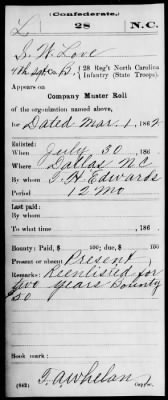 (Confederate.)
L 28 N.C.
S. W. Love
4th Sgt. Co. B, 28 Reg't North Carolina
Infantry (State Troops).
Appears on
Company Muster Roll
of the organization named above,
for Dated Mar. 1, 1862
Enlisted:
When July 30, 186
Where Dallas NC
By whom T. H. Edwards
Period 12 mo
Last paid:
By whom
To what time , 186
Bounty: Paid, $ 100; due $ 100
Present or absent Present
Remarks: Reenlisted for
two years Bounty
50
Book mark:
T. A. Whelan
(642) Copyist.